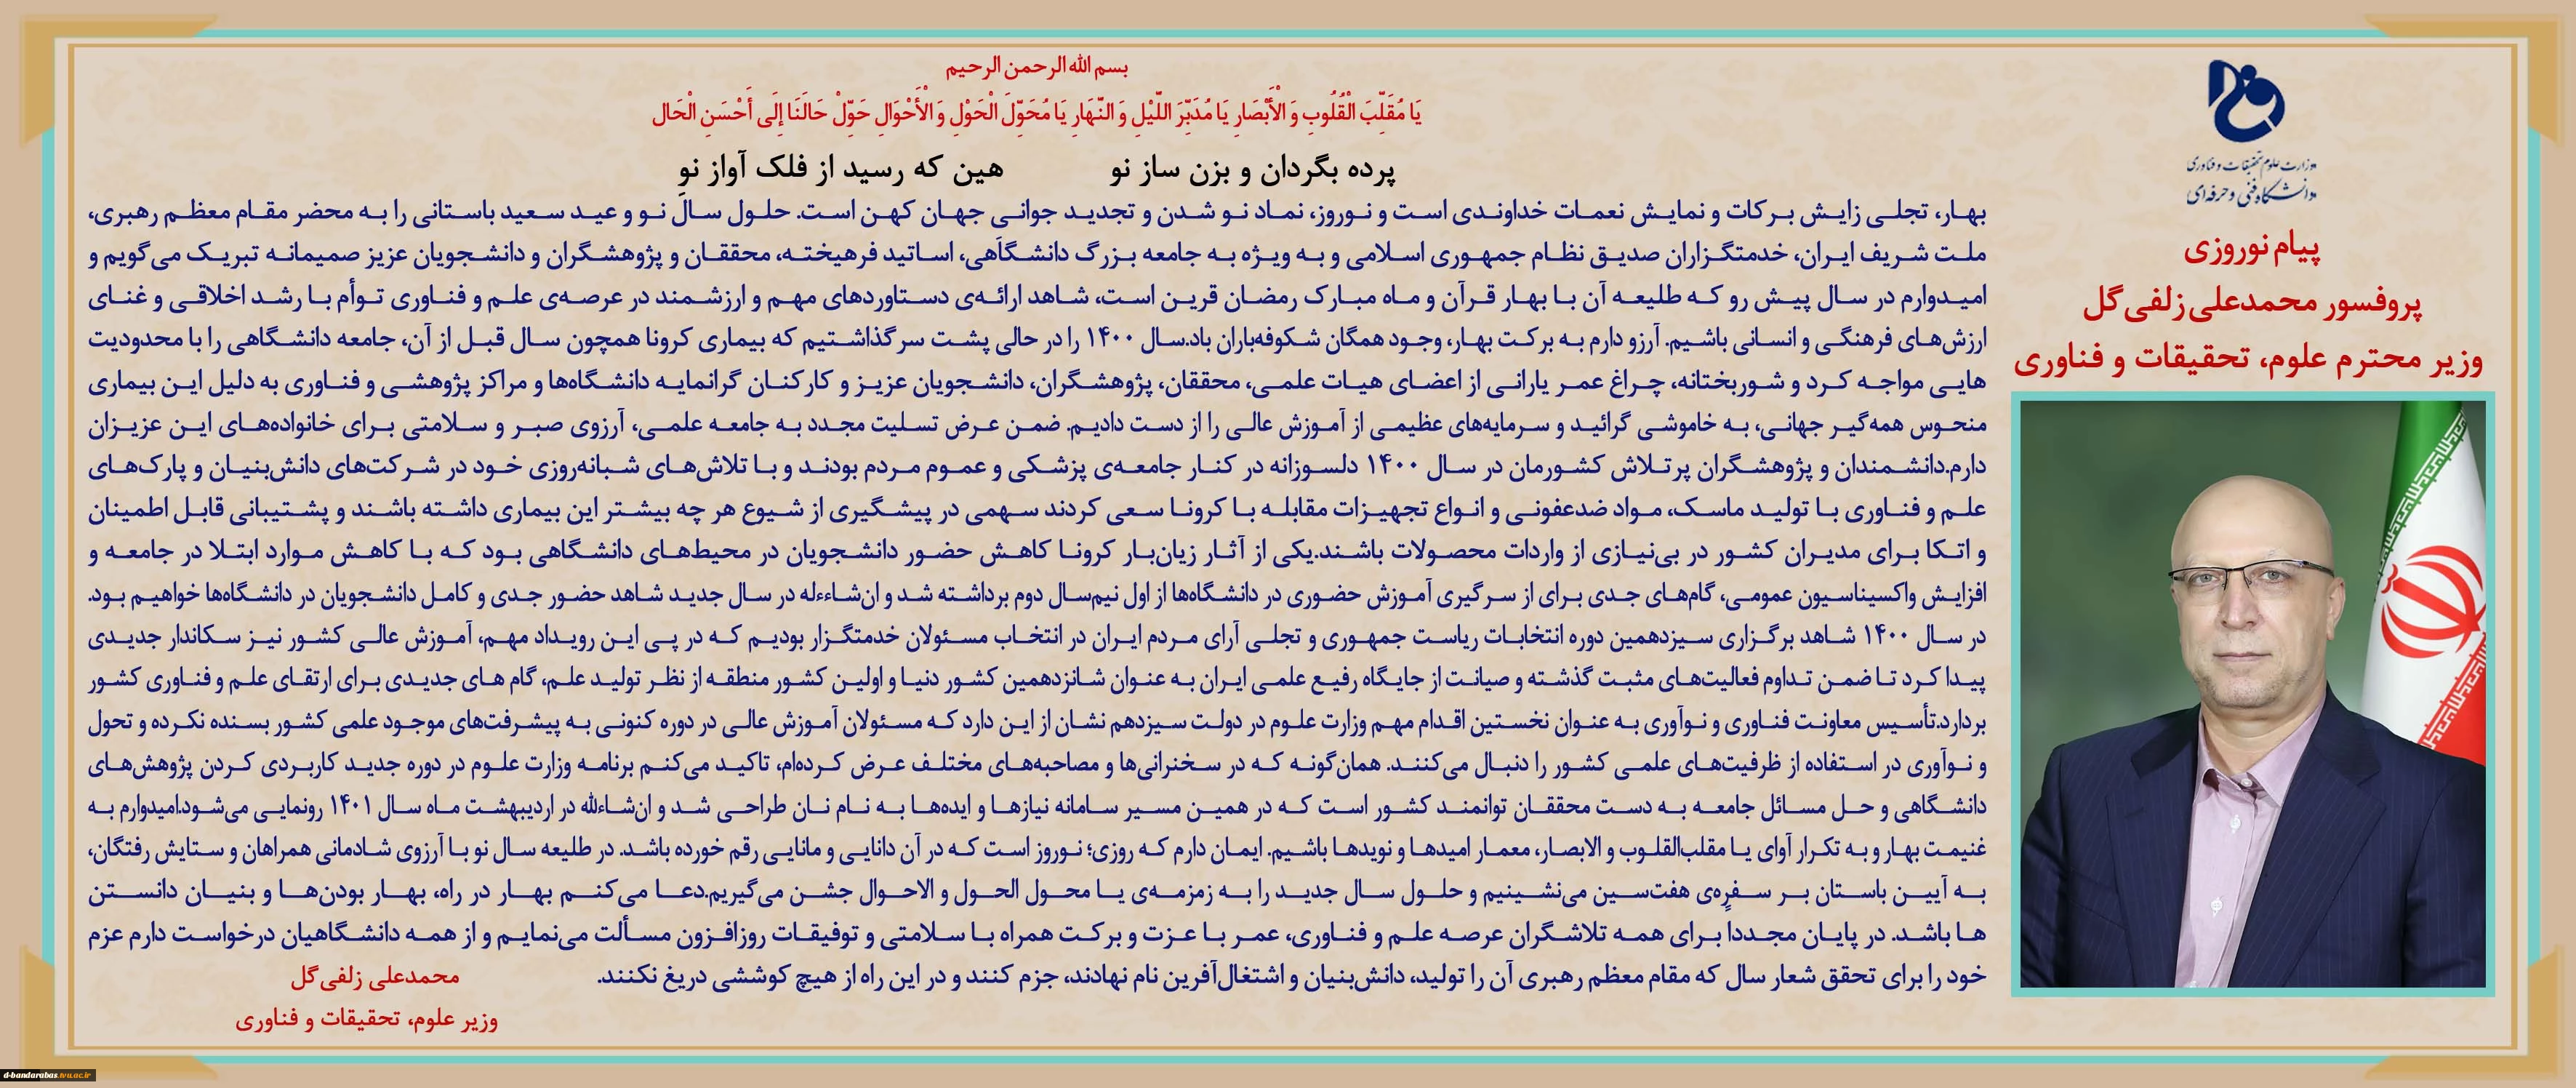 بسم الله الرحمن الرحیم
یَا مُقَلِّبَ الْقُلُوبِ وَ الْأَبْصَارِ یَا مُدَبِّرَ اللَّیْلِ وَ النَّهَارِ یَا مُحَوِّلَ الْحَوْلِ وَ الْأَحْوَالِ حَوِّلْ حَالَنَا إِلَی أَحْسَنِ الْحَال
پرده بگردان و بزن ساز نو هین که رسید از فلک آواز نو
وزارت علوم تحقیقات و فناوری
دانشگاه فنی و حرفه‌ای
پیام نوروزی
پروفسور محمدعلی زلفی گل
وزیر محترم علوم، تحقیقات و فناوری
بهار، تجلی زایش برکات و نمایش نعمات خداوندی است و نوروز، نماد نو شدن و تجدید جوانی جهان کهن است. حلول سال نو و عید سعید باستانی را به محضر مقام معظم رهبری،
ملت شریف ایران، خدمتگزاران صدیق نظام جمهوری اسلامی و به ویژه به جامعه بزرگ دانشگاهی، اساتید فرهیخته، محققان و پژوهشگران و دانشجویان عزیز صمیمانه تبریک می‌گویم و
امیدوارم در سال پیش رو که طلیعه آن با بهار قرآن و ماه مبارک رمضان قرین است، شاهد ارائه‌ی دستاوردهای مهم و ارزشمند در عرصه‌ی علم و فناوری توأم با رشد اخلاقی و غنای
ارزش‌های فرهنگی و انسانی باشیم. آرزو دارم به برکت بهار، وجود همگان شکوفه‌باران باد.سال ۱۴۰۰ را در حالی پشت سر گذاشتیم که بیماری کرونا همچون سال قبل از آن، جامعه دانشگاهی را با محدودیت
هایی مواجه کرد و شوربختانه، چراغ عمر یارانی از اعضای هیات علمی، محققان، پژوهشگران، دانشجویان عزیز و کارکنان گرانمایه دانشگاه‌ها و مراکز پژوهشی و فناوری به دلیل این بیماری
منحوس همه‌گیر جهانی، به خاموشی گرائید و سرمایه‌های عظیمی از آموزش عالی را از دست دادیم. ضمن عرض تسلیت مجدد به جامعه علمی، آرزوی صبر و سلامتی برای خانواده‌های این عزیزان
دارم.دانشمندان و پژوهشگران پرتلاش کشورمان در سال ۱۴۰۰ دلسوزانه در کنار جامعه‌ی پزشکی و عموم مردم بودند و با تلاش‌های شبانه‌روزی خود در شرکت‌های دانش‌بنیان و پارک‌های
علم و فناوری با تولید ماسک، مواد ضدعفونی و انواع تجهیزات مقابله با کرونا سعی کردند سهمی در پیشگیری از شیوع هر چه بیشتر این بیماری داشته باشند و پشتیبانی قابل اطمینان
و اتکا برای مدیران کشور در بی‌نیازی از واردات محصولات باشند.یکی از آثار زیان‌بار کرونا کاهش حضور دانشجویان در محیط‌های دانشگاهی بود که با کاهش موارد ابتلا در جامعه و
افزایش واکسیناسیون عمومی، گام‌های جدی برای از سرگیری آموزش حضوری در دانشگاه‌ها از اول نیم‌سال دوم برداشته شد و ان‌شاءءله در سال جدید شاهد حضور جدی و کامل دانشجویان در دانشگاه‌ها خواهیم بود.
در سال ۱۴۰۰ شاهد برگزاری سیزدهمین دوره انتخابات ریاست جمهوری و تجلی آرای مردم ایران در انتخاب مسئولان خدمتگزار بودیم که در پی این رویداد مهم، آموزش عالی کشور نیز سکاندار جدیدی
پیدا کرد تا ضمن تداوم فعالیت‌های مثبت گذشته و صیانت از جایگاه رفیع علمی ایران به عنوان شانزدهمین کشور دنیا و اولین کشور منطقه از نظر تولید علم، گام های جدیدی برای ارتقای علم و فناوری کشور
بردارد.تأسیس معاونت فناوری و نوآوری به عنوان نخستین اقدام مهم وزارت علوم در دولت سیزدهم نشان از این دارد که مسئولان آموزش عالی در دوره کنونی به پیشرفت‌های موجود علمی کشور بسنده نکرده و تحول
و نوآوری در استفاده از ظرفیت‌های علمی کشور را دنبال می‌کنند. همان‌گونه که در سخنرانی‌ها و مصاحبه‌های مختلف عرض کرده‌ام، تاکید می‌کنم برنامه وزارت علوم در دوره جدید کاربردی کردن پژوهش‌های
دانشگاهی و حل مسائل جامعه به دست محققان توانمند کشور است که در همین مسیر سامانه نیازها و ایده‌ها به نام نان طراحی شد و ان‌شاءلله در اردیبهشت ماه سال ۱۴۰۱ رونمایی می‌شود.امیدوارم به
غنیمت بهار و به تکرار آوای یا مقلب‌القلوب و الابصار، معمار امیدها و نویدها باشیم. ایمان دارم که روزی؛ نوروز است که در آن دانایی و مانایی رقم خورده باشد. در طلیعه سال نو با آرزوی شادمانی همراهان و ستایش رفتگان،
به آیین باستان بر سفره‌ی هفت‌سین می‌نشینیم و حلول سال جدید را به زمزمه‌ی یا محول الحول و الاحوال جشن می‌گیریم.دعا می‌کنم بهار در راه، بهار بودن‌ها و بنیان دانستن
ها باشد. در پایان مجددا برای همه تلاشگران عرصه علم و فناوری، عمر با عزت و برکت همراه با سلامتی و توفیقات روزافزون مسألت می‌نمایم و از همه دانشگاهیان درخواست دارم عزم
خود را برای تحقق شعار سال که مقام معظم رهبری آن را تولید، دانش‌بنیان و اشتغال‌آفرین نام نهادند، جزم کنند و در این راه از هیچ کوششی دریغ نکنند.
محمدعلی زلفی گل
وزیر علوم، تحقیقات و فناوری
d-bandarabas.tvu.ac.ir